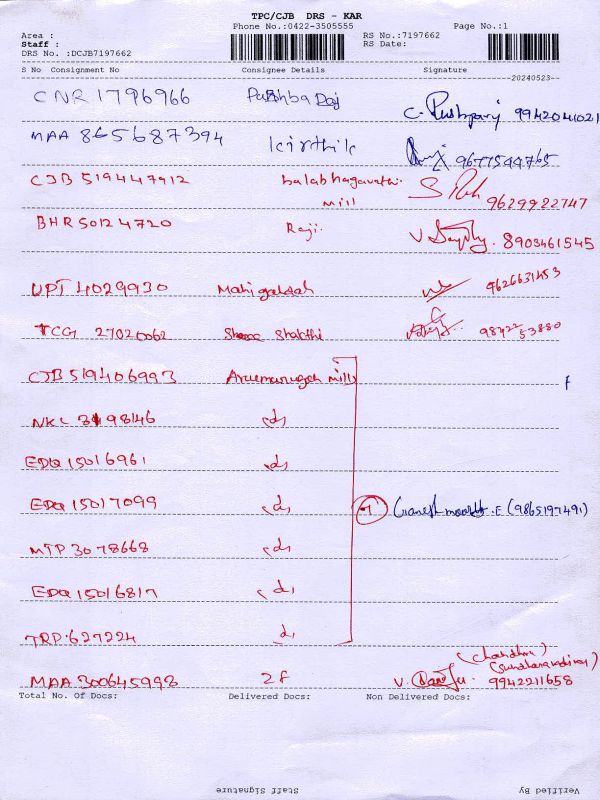 TPC/CJB DRS - KAR
Phone No.:0422-3505555 Page No.:1
Area :
Staff : RS No.:7197662
DRS No. :DCJB7197662 RS Date:
S No Consignment No Consignee Details Signature
20240523
CNR 1796966 PushbaRaj C. Pushparaj 9942041021
MAA 865687394 kirthik 9677544765
CJB 519447912 balabhagavathi mill 9629922747
BHR 50124720 Raji. 8903461545
UPT 4029930 Mahi 9626631453
TCG 27020062 Shakthi 9842253880
CJB 519406993 mills
NKL 3198146 do
EDQ 15016961 do
EDQ 15017099 do 7 Ganesh .E (9865197491)
MTP 3078668 do
EDQ 15016817 do
TRP 627224 do
(Chandhra)
MAA 300645998 2F V. 9942211658
Total No. Of Docs: Delivered Docs: Non Delivered Docs:
Staff Signature Verified By